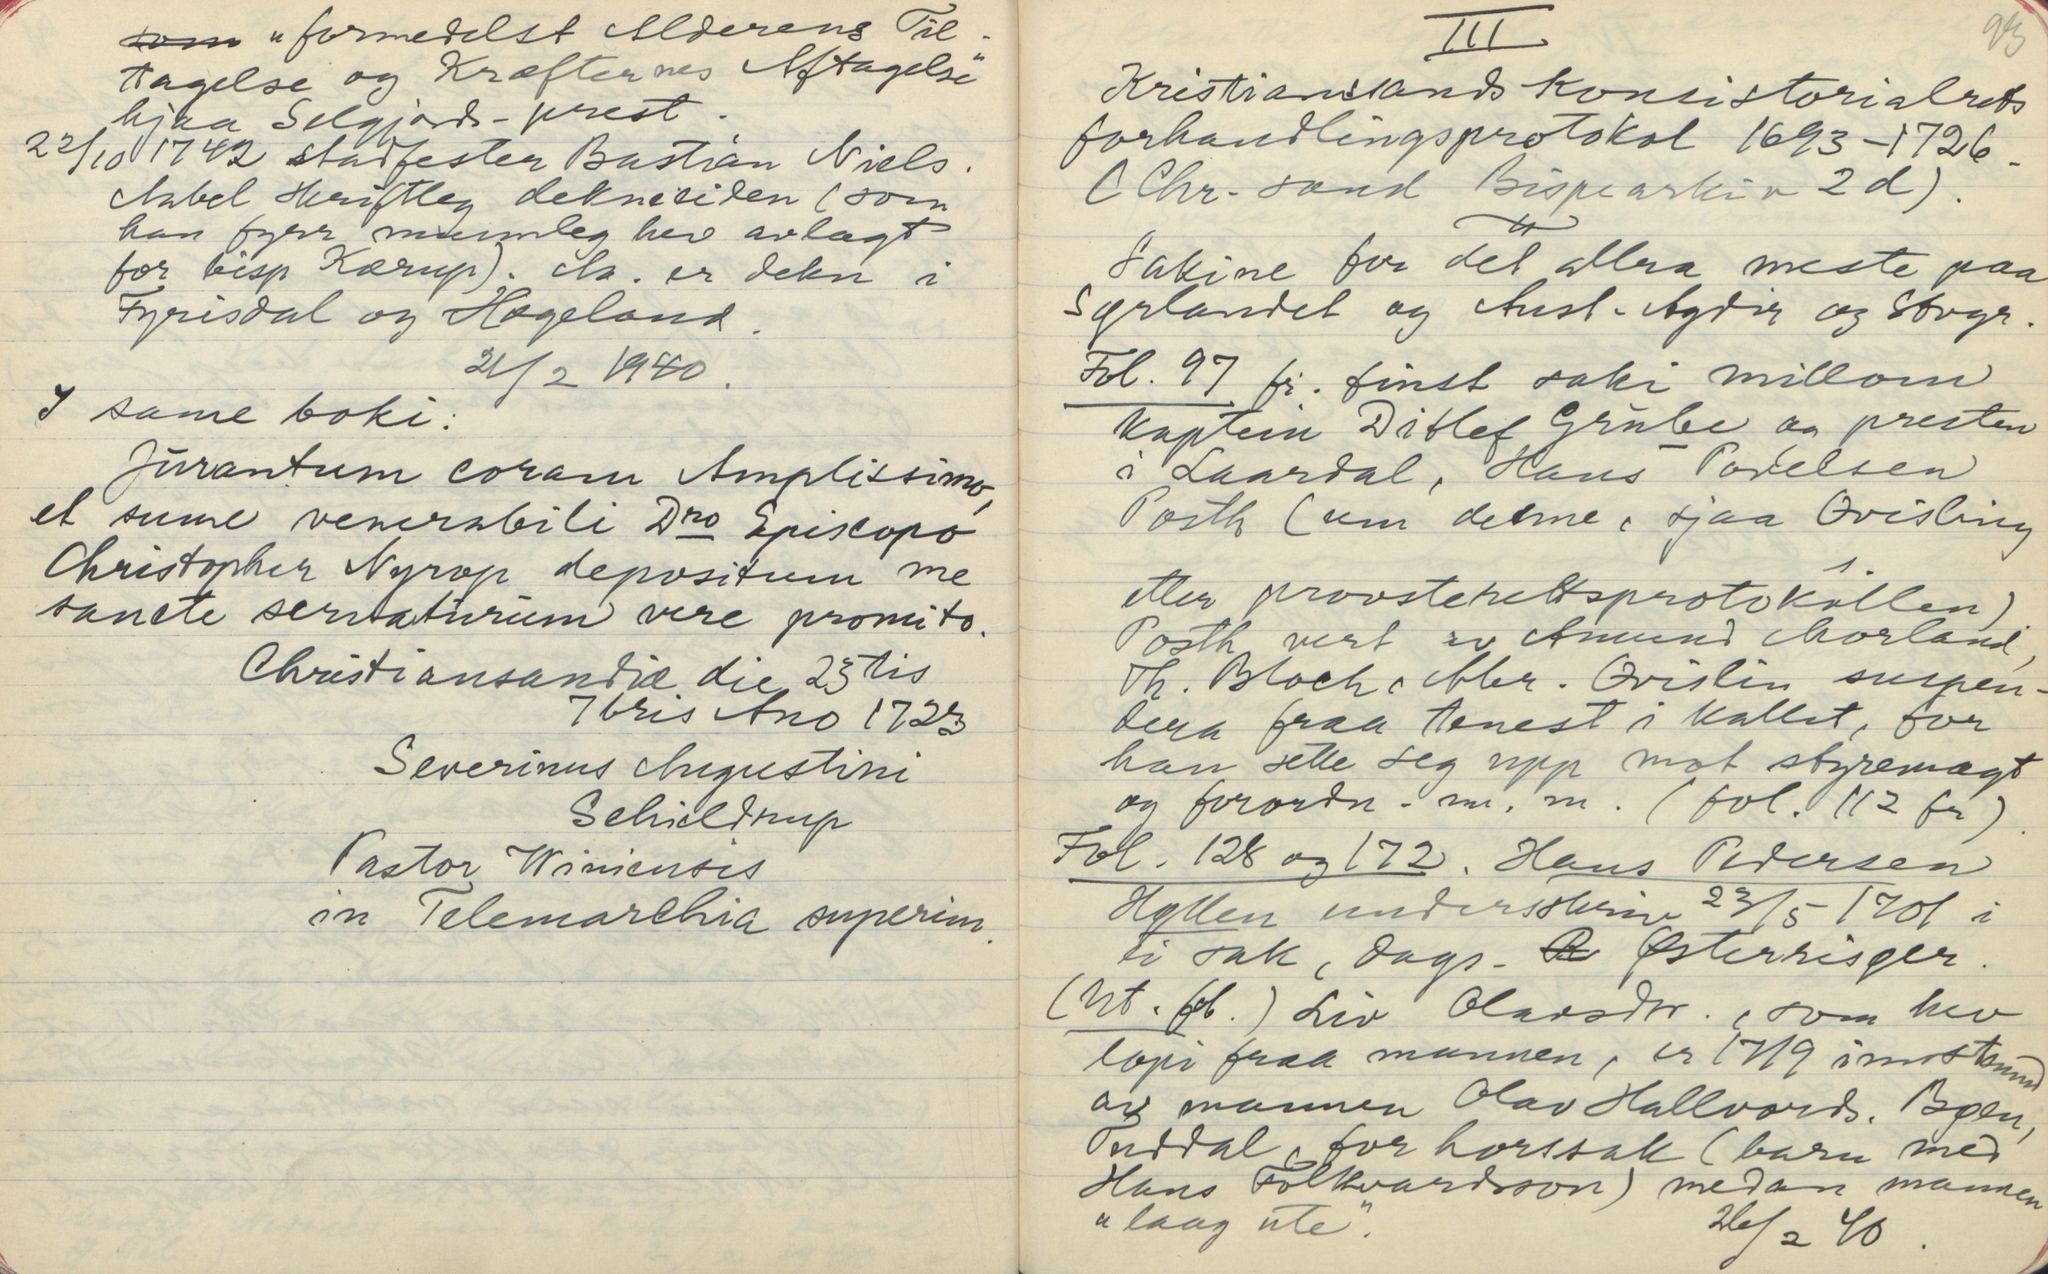 som "formedelst Alderens Til-
tagelse og Kræfternes Aftagelse"
hjaa Selgjords-prest.
22/10 1742 stadfester Bastian Niels.
Aabel skriftleg dekneeiden (som
han fyrr munnleg hev avlagt
for bisp Kærup). Aa. er dekn i
Fyrisdal og Hægeland.
21/2 1940.
I same boki:
Jūrantum coram Amplissimo,
et sume venerabili Dno Episcopo
Christopher Nyrop depositum me
sancte servatūrum vere promito.
Christiansandiæ die 23tis
7bris Ano 1723
Severinus Augustini
Schieldrup
Pastor Winiensis
in Telemarchia superim.
III
93
Kristiansands Konsistorialrets
forhandlingsprotokol 1693-1726.
(Chr-sand Bispearkiv 2 d).
Sakine for det allra meste paa
Sørlandet og Aust-Agdir og Stvgr.
Fol. 97 fr. finst saki millom
kaptein Ditlef Grūbe og presten
i Laardal, Hans Povelsen
Posth (um denne, sjaa Qvisling
etter provsteretsprotokollen)
Posth vert av Amund Morland,
Th. Bloch, Abr. Qvislin suspen-
dera fraa tenest i kallet, for
han sette seg upp mot styremagt
og forordn. m. m. (fol. 112 fr).
Fol. 128 og 172. Hans Pedersen
Hyllen underskriv 23/5 1701 i
ei sak, dags. Østerrisøer.
(Ut. fol.) Liv Olavsdtr., som hev
lopi fraa mannen, er 1719 imotteund
av mannen Olav Hallvords. Bøen,
Tuddal, for horssak (barn med
Hans Folkvardsson) medan mannen
"laag ūte".
26/2 40.